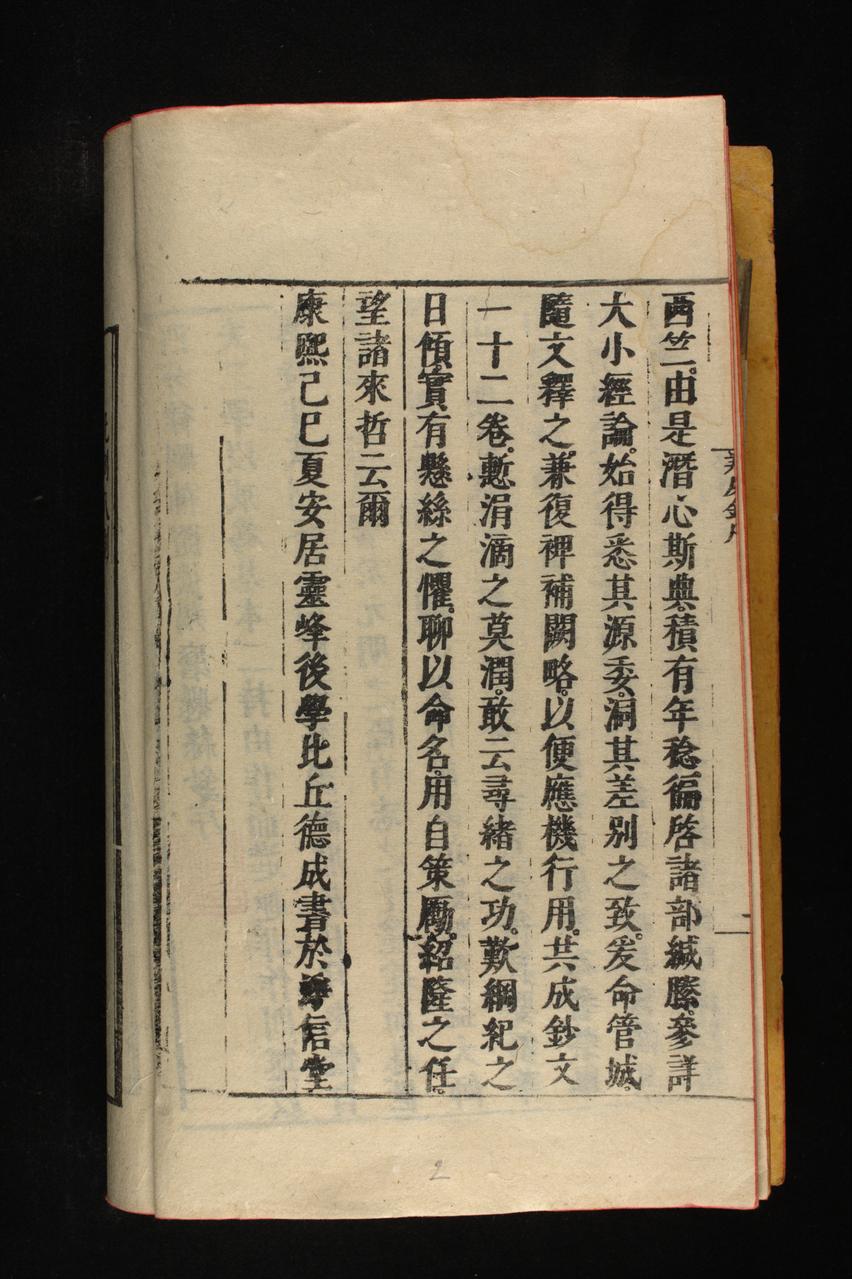 西竺。由是潛心斯典。積有年稔。徧啓諸部緘縢。參詳
大小經論。始得悉其源委。洞其差別之致。爰命管城。
隨文釋之。兼復裨補闕略。以便應機行用。共成鈔文
一十二卷。慙涓滴之莫潤。敢云尋緒之功。歎綱紀之
日頹。實有懸絲之懼。聊以命名。用自策勵。紹隆之任。
望諸來哲云爾
康熙己巳夏安居靈峰後學比丘德成書於
信堂
二
2